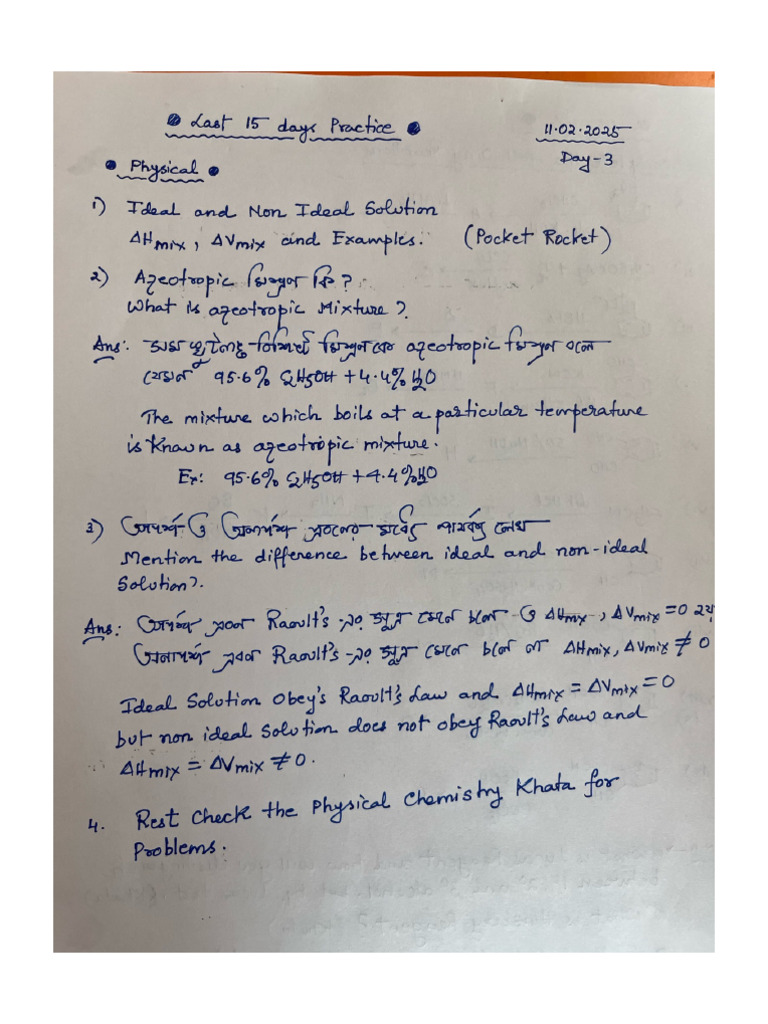 Last 15 days Practice
11.02.2025
Day-3
Physical
1) Ideal and Non Ideal Solution
ΔHmix, ΔVmix and Examples. (Pocket Rocket)
2) Azeotropic মিশ্রণ কি?
What is azeotropic Mixture?
Ans: সম স্ফুটনাঙ্ক বিশিষ্ট মিশ্রণকে azeotropic মিশ্রণ বলে
যেমন 95.6% C2H5OH + 4.4% H2O
The mixture which boils at a particular temperature
is Known as azeotropic mixture.
Ex: 95.6% C2H5OH + 4.4% H2O
3) আদর্শ ও অনাদর্শ দ্রবণের মধ্যে পার্থক্য লেখ
Mention the difference between ideal and non-ideal
Solution?.
Ans: আদর্শ দ্রবণ Raoult's -এর সূত্র মেনে চলে ও ΔHmix, ΔVmix = 0 হয়
অনাদর্শ দ্রবণ Raoult's -এর সূত্র মেনে চলে না ΔHmix, ΔVmix ≠ 0
Ideal Solution Obey's Raoult's Law and ΔHmix = ΔVmix = 0
but non ideal solution does not obey Raoult's Law and
ΔHmix = ΔVmix ≠ 0.
4. Rest Check the Physical Chemistry Khata for
Problems.